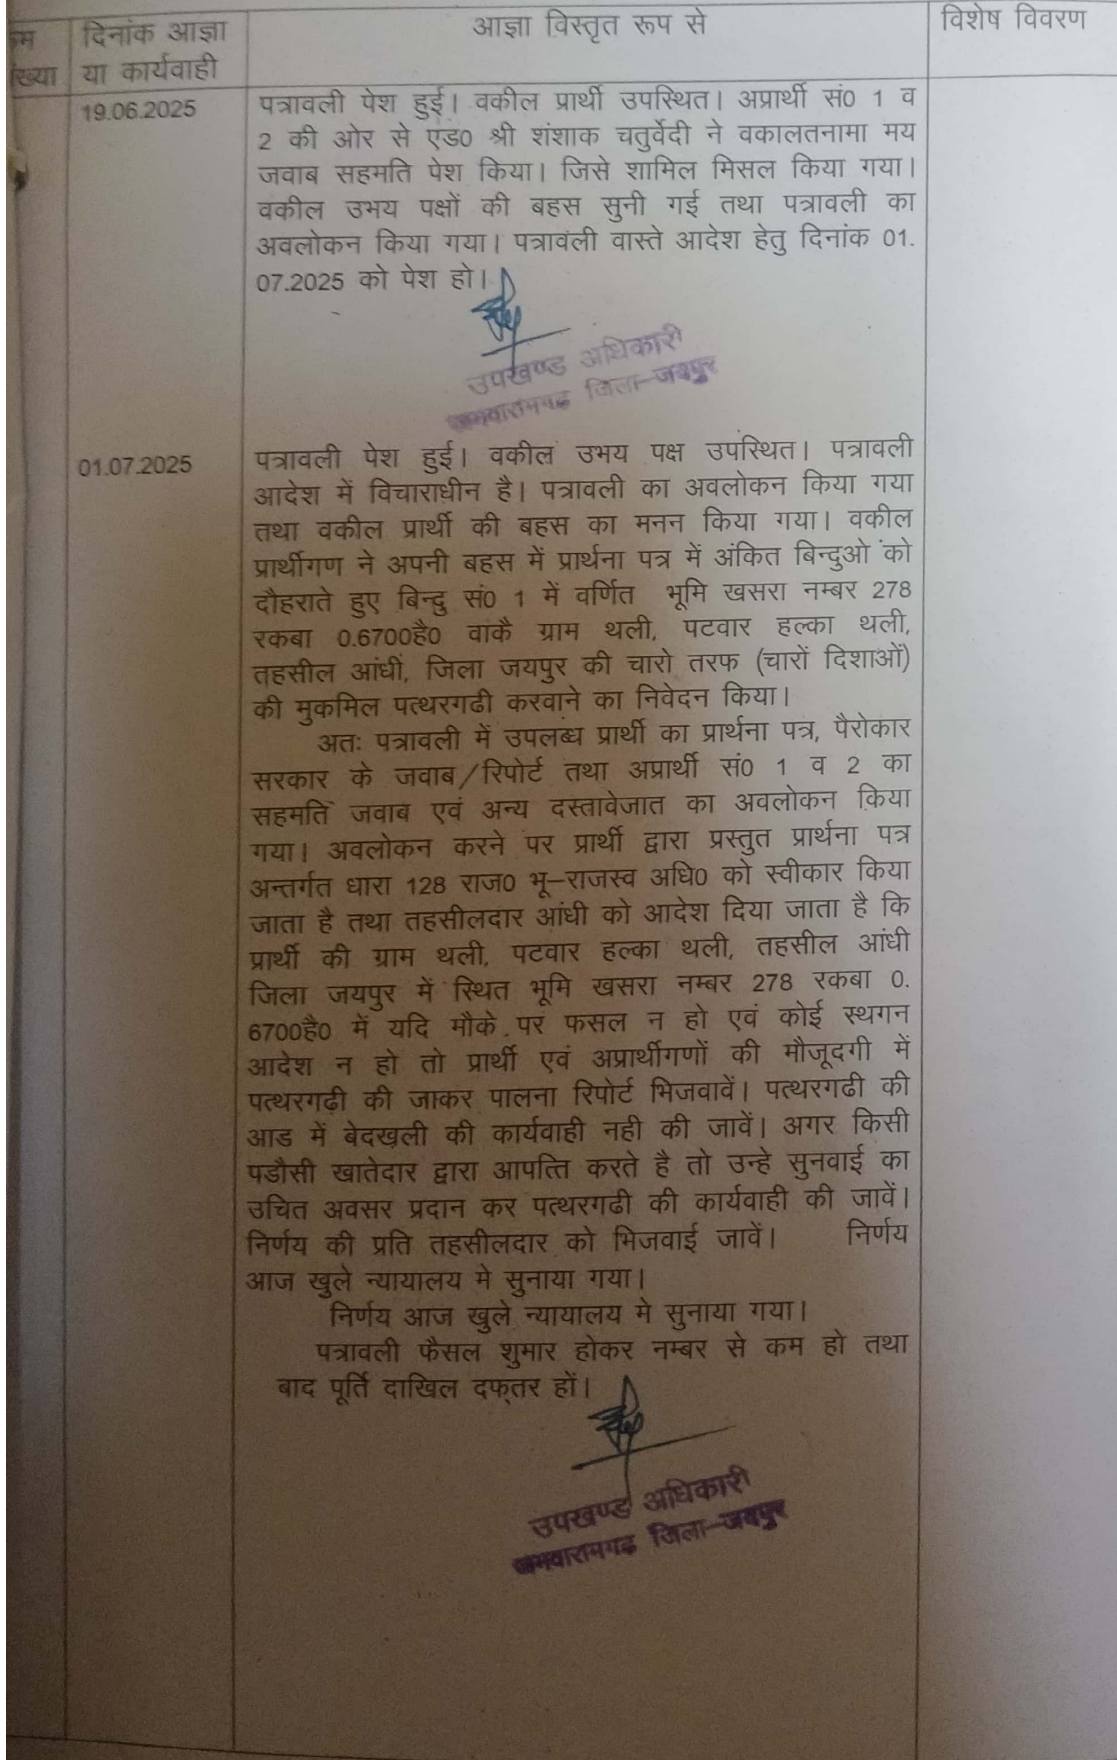 दिनांक आज्ञा
या कार्यवाही
आज्ञा विस्तृत रूप से
विशेष विवरण
19.06.2025
पत्रावली पेश हुई। वकील प्रार्थी उपस्थित। अप्रार्थी सं0 1 व
2 की ओर से एड0 श्री शंशाक चतुर्वेदी ने वकालतनामा मय
जवाब सहमति पेश किया। जिसे शामिल मिसल किया गया।
वकील उभय पक्षों की बहस सुनी गई तथा पत्रावली का
अवलोकन किया गया। पत्रावली वास्ते आदेश हेतु दिनांक 01.
07.2025 को पेश हो।
उपखण्ड अधिकारी
जमवारामगढ जिला-जयपुर
01.07.2025
पत्रावली पेश हुई। वकील उभय पक्ष उपस्थित। पत्रावली
आदेश में विचाराधीन है। पत्रावली का अवलोकन किया गया
तथा वकील प्रार्थी की बहस का मनन किया गया। वकील
प्रार्थीगण ने अपनी बहस में प्रार्थना पत्र में अंकित बिन्दुओ को
दौहराते हुए बिन्दु सं0 1 में वर्णित भूमि खसरा नम्बर 278
रकबा 0.6700है0 वाकै ग्राम थली, पटवार हल्का थली,
तहसील आंधी, जिला जयपुर की चारो तरफ (चारों दिशाओं)
की मुकमिल पत्थरगढी करवाने का निवेदन किया।
अतः पत्रावली में उपलब्ध प्रार्थी का प्रार्थना पत्र, पैरोकार
सरकार के जवाब/रिपोर्ट तथा अप्रार्थी सं0 1 व 2 का
सहमति जवाब एवं अन्य दस्तावेजात का अवलोकन किया
गया। अवलोकन करने पर प्रार्थी द्वारा प्रस्तुत प्रार्थना पत्र
अन्तर्गत धारा 128 राज0 भू-राजस्व अधि0 को स्वीकार किया
जाता है तथा तहसीलदार आंधी को आदेश दिया जाता है कि
प्रार्थी की ग्राम थली, पटवार हल्का थली, तहसील आंधी
जिला जयपुर में स्थित भूमि खसरा नम्बर 278 रकबा 0.
6700है0 में यदि मौके पर फसल न हो एवं कोई स्थगन
आदेश न हो तो प्रार्थी एवं अप्रार्थीगणों की मौजूदगी में
पत्थरगढी की जाकर पालना रिपोर्ट भिजवावें। पत्थरगढी की
आड में बेदखली की कार्यवाही नही की जावें। अगर किसी
पडौसी खातेदार द्वारा आपत्ति करते है तो उन्हे सुनवाई का
उचित अवसर प्रदान कर पत्थरगढी की कार्यवाही की जावें।
निर्णय की प्रति तहसीलदार को भिजवाई जावें। निर्णय
आज खुले न्यायालय मे सुनाया गया।
निर्णय आज खुले न्यायालय मे सुनाया गया।
पत्रावली फैसल शुमार होकर नम्बर से कम हो तथा
बाद पूर्ति दाखिल दफ्तर हों।
उपखण्ड अधिकारी
जमवारामगढ जिला-जयपुर